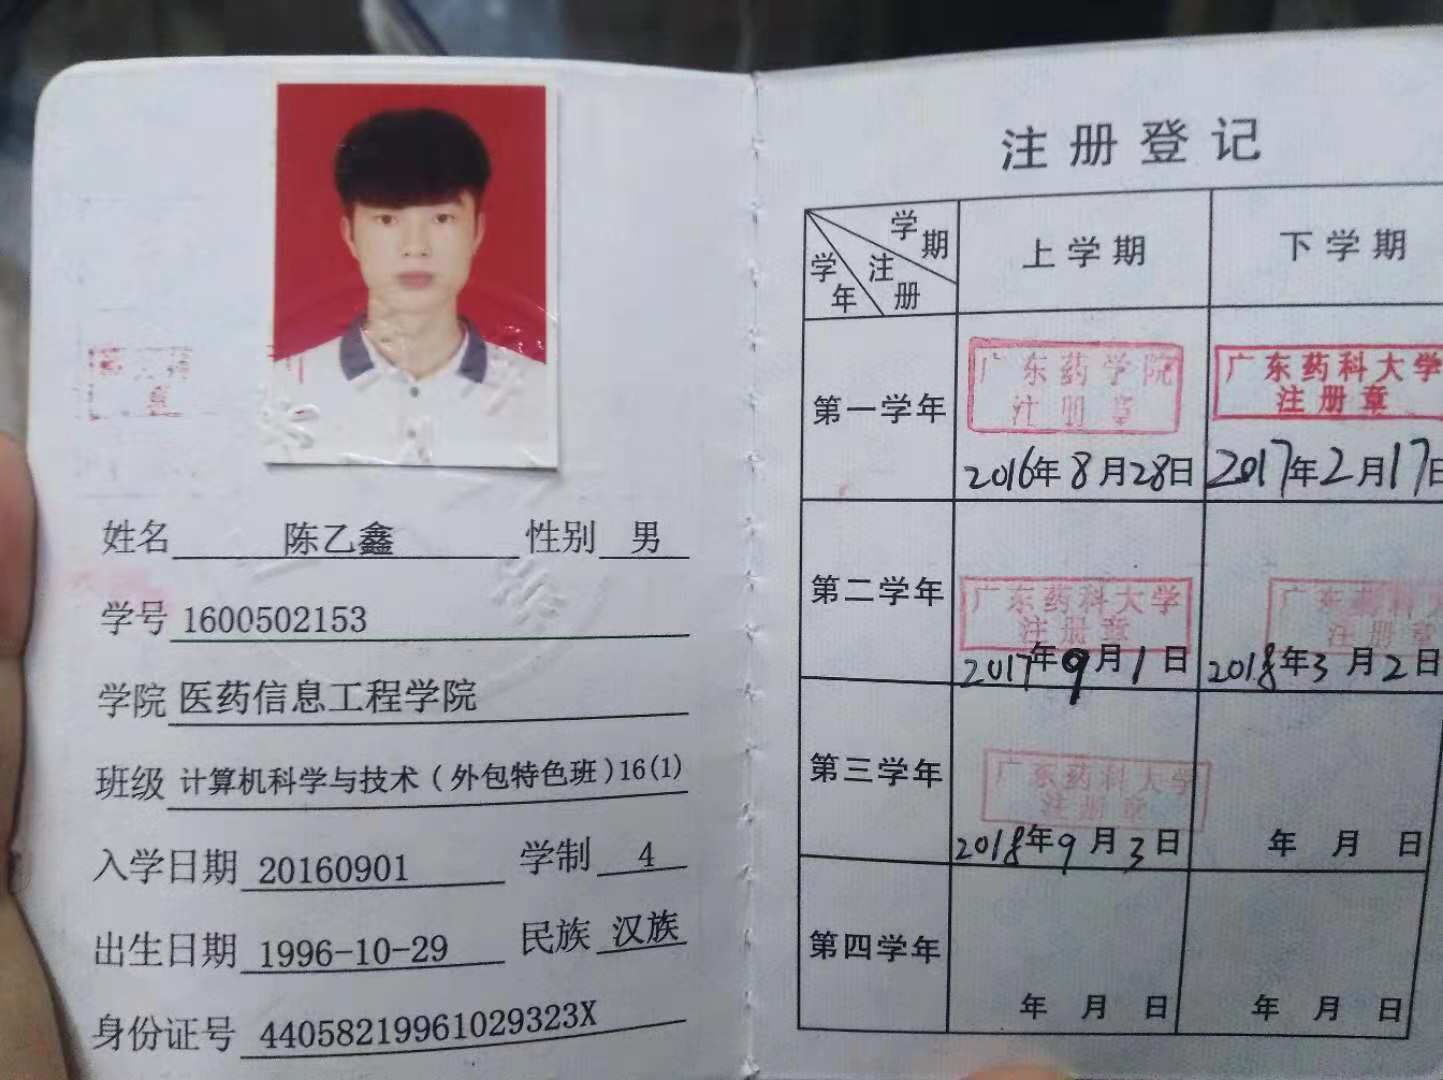 姓名 陈乙鑫 性别 男
学号 1600502153
学院 医药信息工程学院
班级 计算机科学与技术（外包特色班）16(1)
入学日期 20160901 学制 4
出生日期 1996-10-29 民族 汉族
身份证号 44058219961029323X
注册登记
学期 注册 学年 上学期 下学期
第一学年
广东药学院
注册章
2016年8月28日
广东药科大学
注册章
2017年2月17日
第二学年
广东药科大学
注册章
2017年9月1日
广东药科大
注册章
2018年3月2日
第三学年
广东药科大学
注册章
2018年9月3日
年 月 日
第四学年
年 月 日
年 月 日